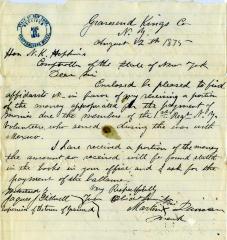 Gravesend Kings Co
N.Y.
August 12th 1875
Hon. N. K. Hopkins
Comptroller of the State of New York
Dear Sir
Enclosed be pleased to find
affidavits &c. in favor of my receiving a portion
of the money appropriated for the payment of
monies due the members of the 1st Regt. N.Y.
Volunteers who served during the war with
Mexico.
I have received a portion of the money
the amount so received will be found
in the books in your office and I ask for the
payment of the balance.
Very Respectfully
Your
Martin
Supervisor of the Town of Gravesend